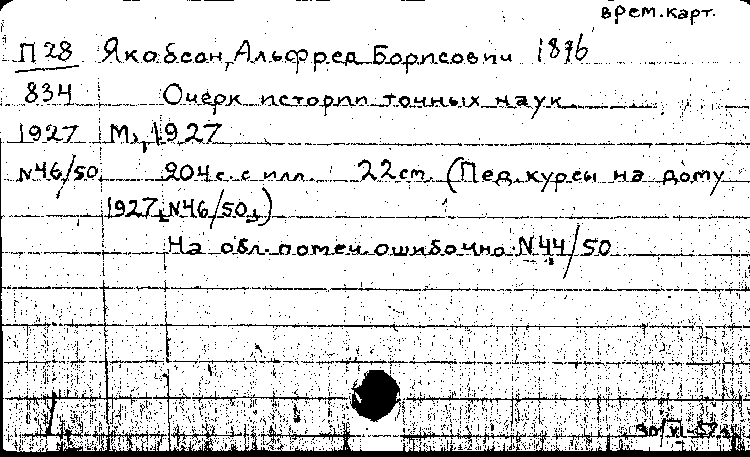 врем.карт.
П 28 Якобсон, Альфред Борисович 1876
834 Очерк истории точных наук
1927 М., 1927
N46/50 204 с. с илл. 22 ст. (Пед. курсы на дому
1927, N46/50.)
На обл. помеч. ошибочно: N44/50